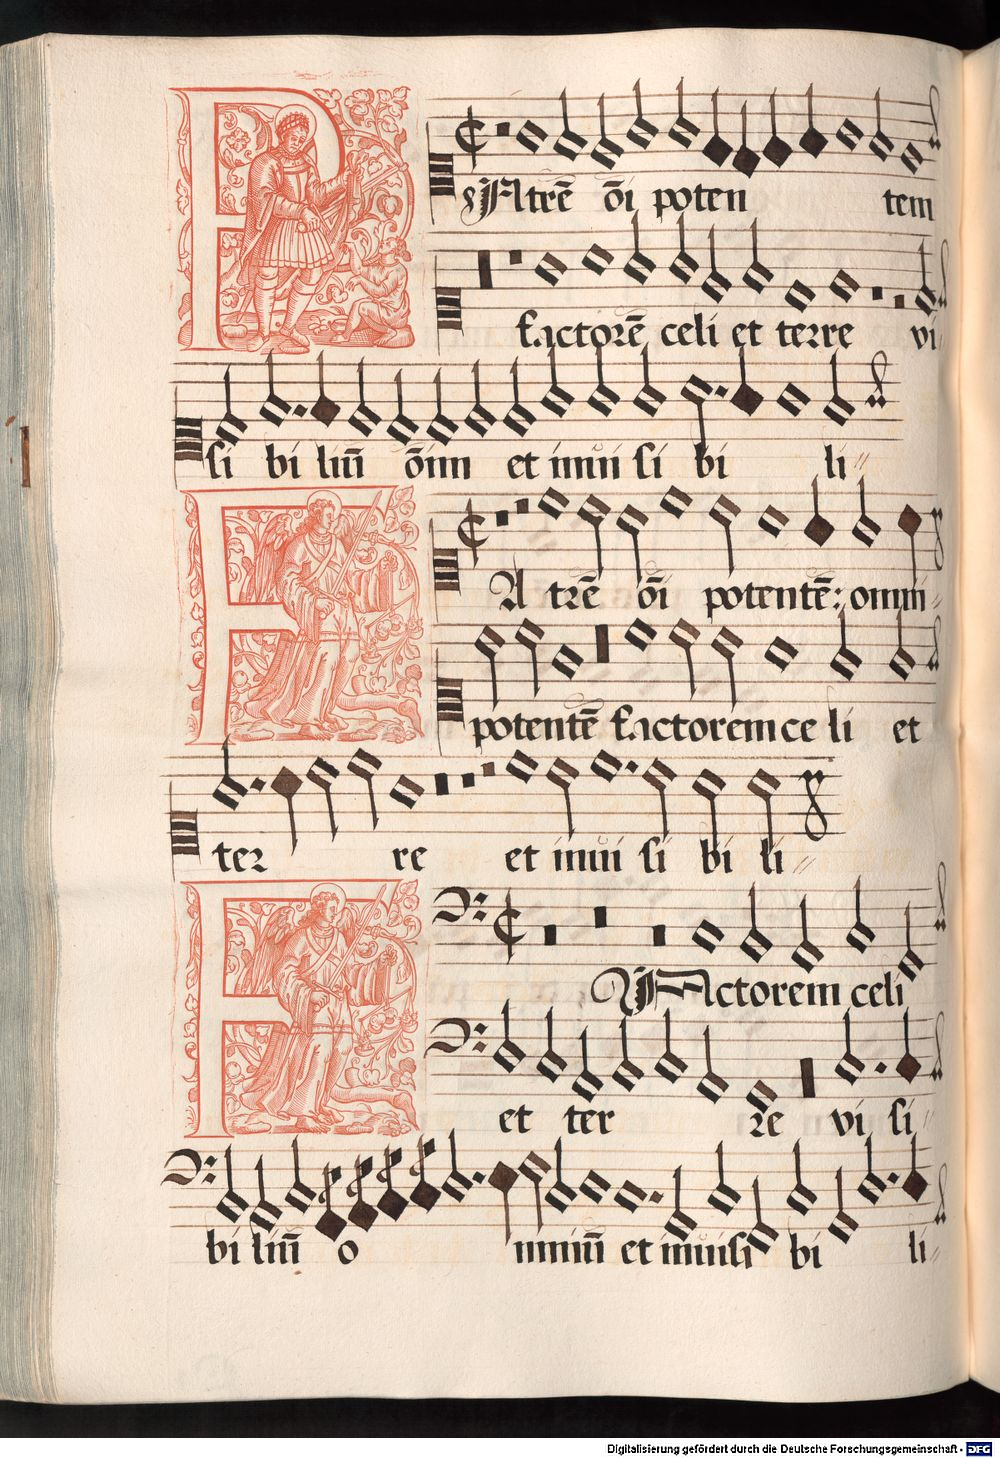 PAtrē oı̄ poten tem
factorē celi et terre vi
si bi liū oīm et inui si bi li〃
A trē oı̄ potentē: omni〃
potentē factorem ce li et
ter re et inui si bi li〃
FActorem celi
et ter re vi si〃
bi liū o mniū et inuisi bi li〃
Digitalisierung gefördert durch die Deutsche Forschungsgemeinschaft - DFG